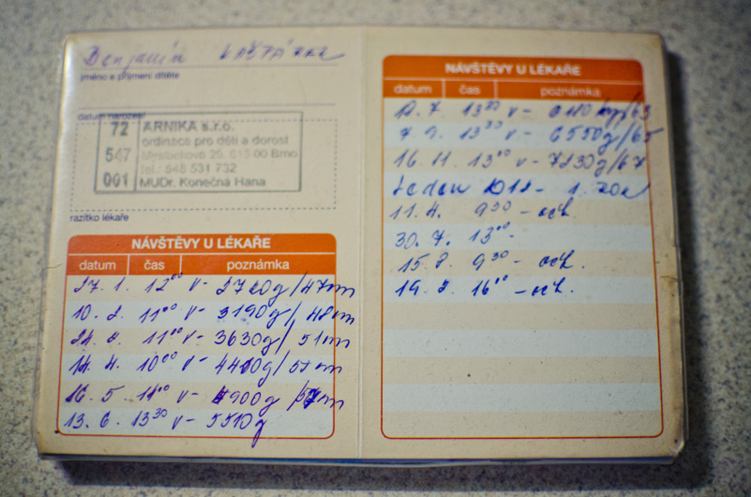 Benjamín
jméno a příjmení dítěte
datum narození
72 ARNIKA s.r.o.
ordinace pro děti a dorost
547 613 00 Brno
tel.: 548 531 732
001 MUDr. Konečná Hana
razítko lékaře
NÁVŠTĚVY U LÉKAŘE
datum čas poznámka
27. 1. 12⁰⁰ v - g/47cm
10. 2. 11⁰⁰ v - 3190g/48cm
11⁰⁰ v - 3630g/51cm
14. 4. 10⁰⁰ v - 4410g/
16. 5. 11⁰⁰ v - 4900g
13. 6. 13³⁰ v - 5510g
NÁVŠTĚVY U LÉKAŘE
datum čas poznámka
13³⁰ v - /63
7. 9. 13³⁰ v - 6550g/65
16. 11. 13⁰⁰ v - 7230g/67
Leden 1.
11. 4. 9³⁰ - oč.
30. 7. 13⁰⁰
15. 8. 9³⁰ - oč.
19. 16⁰⁰ - oč.